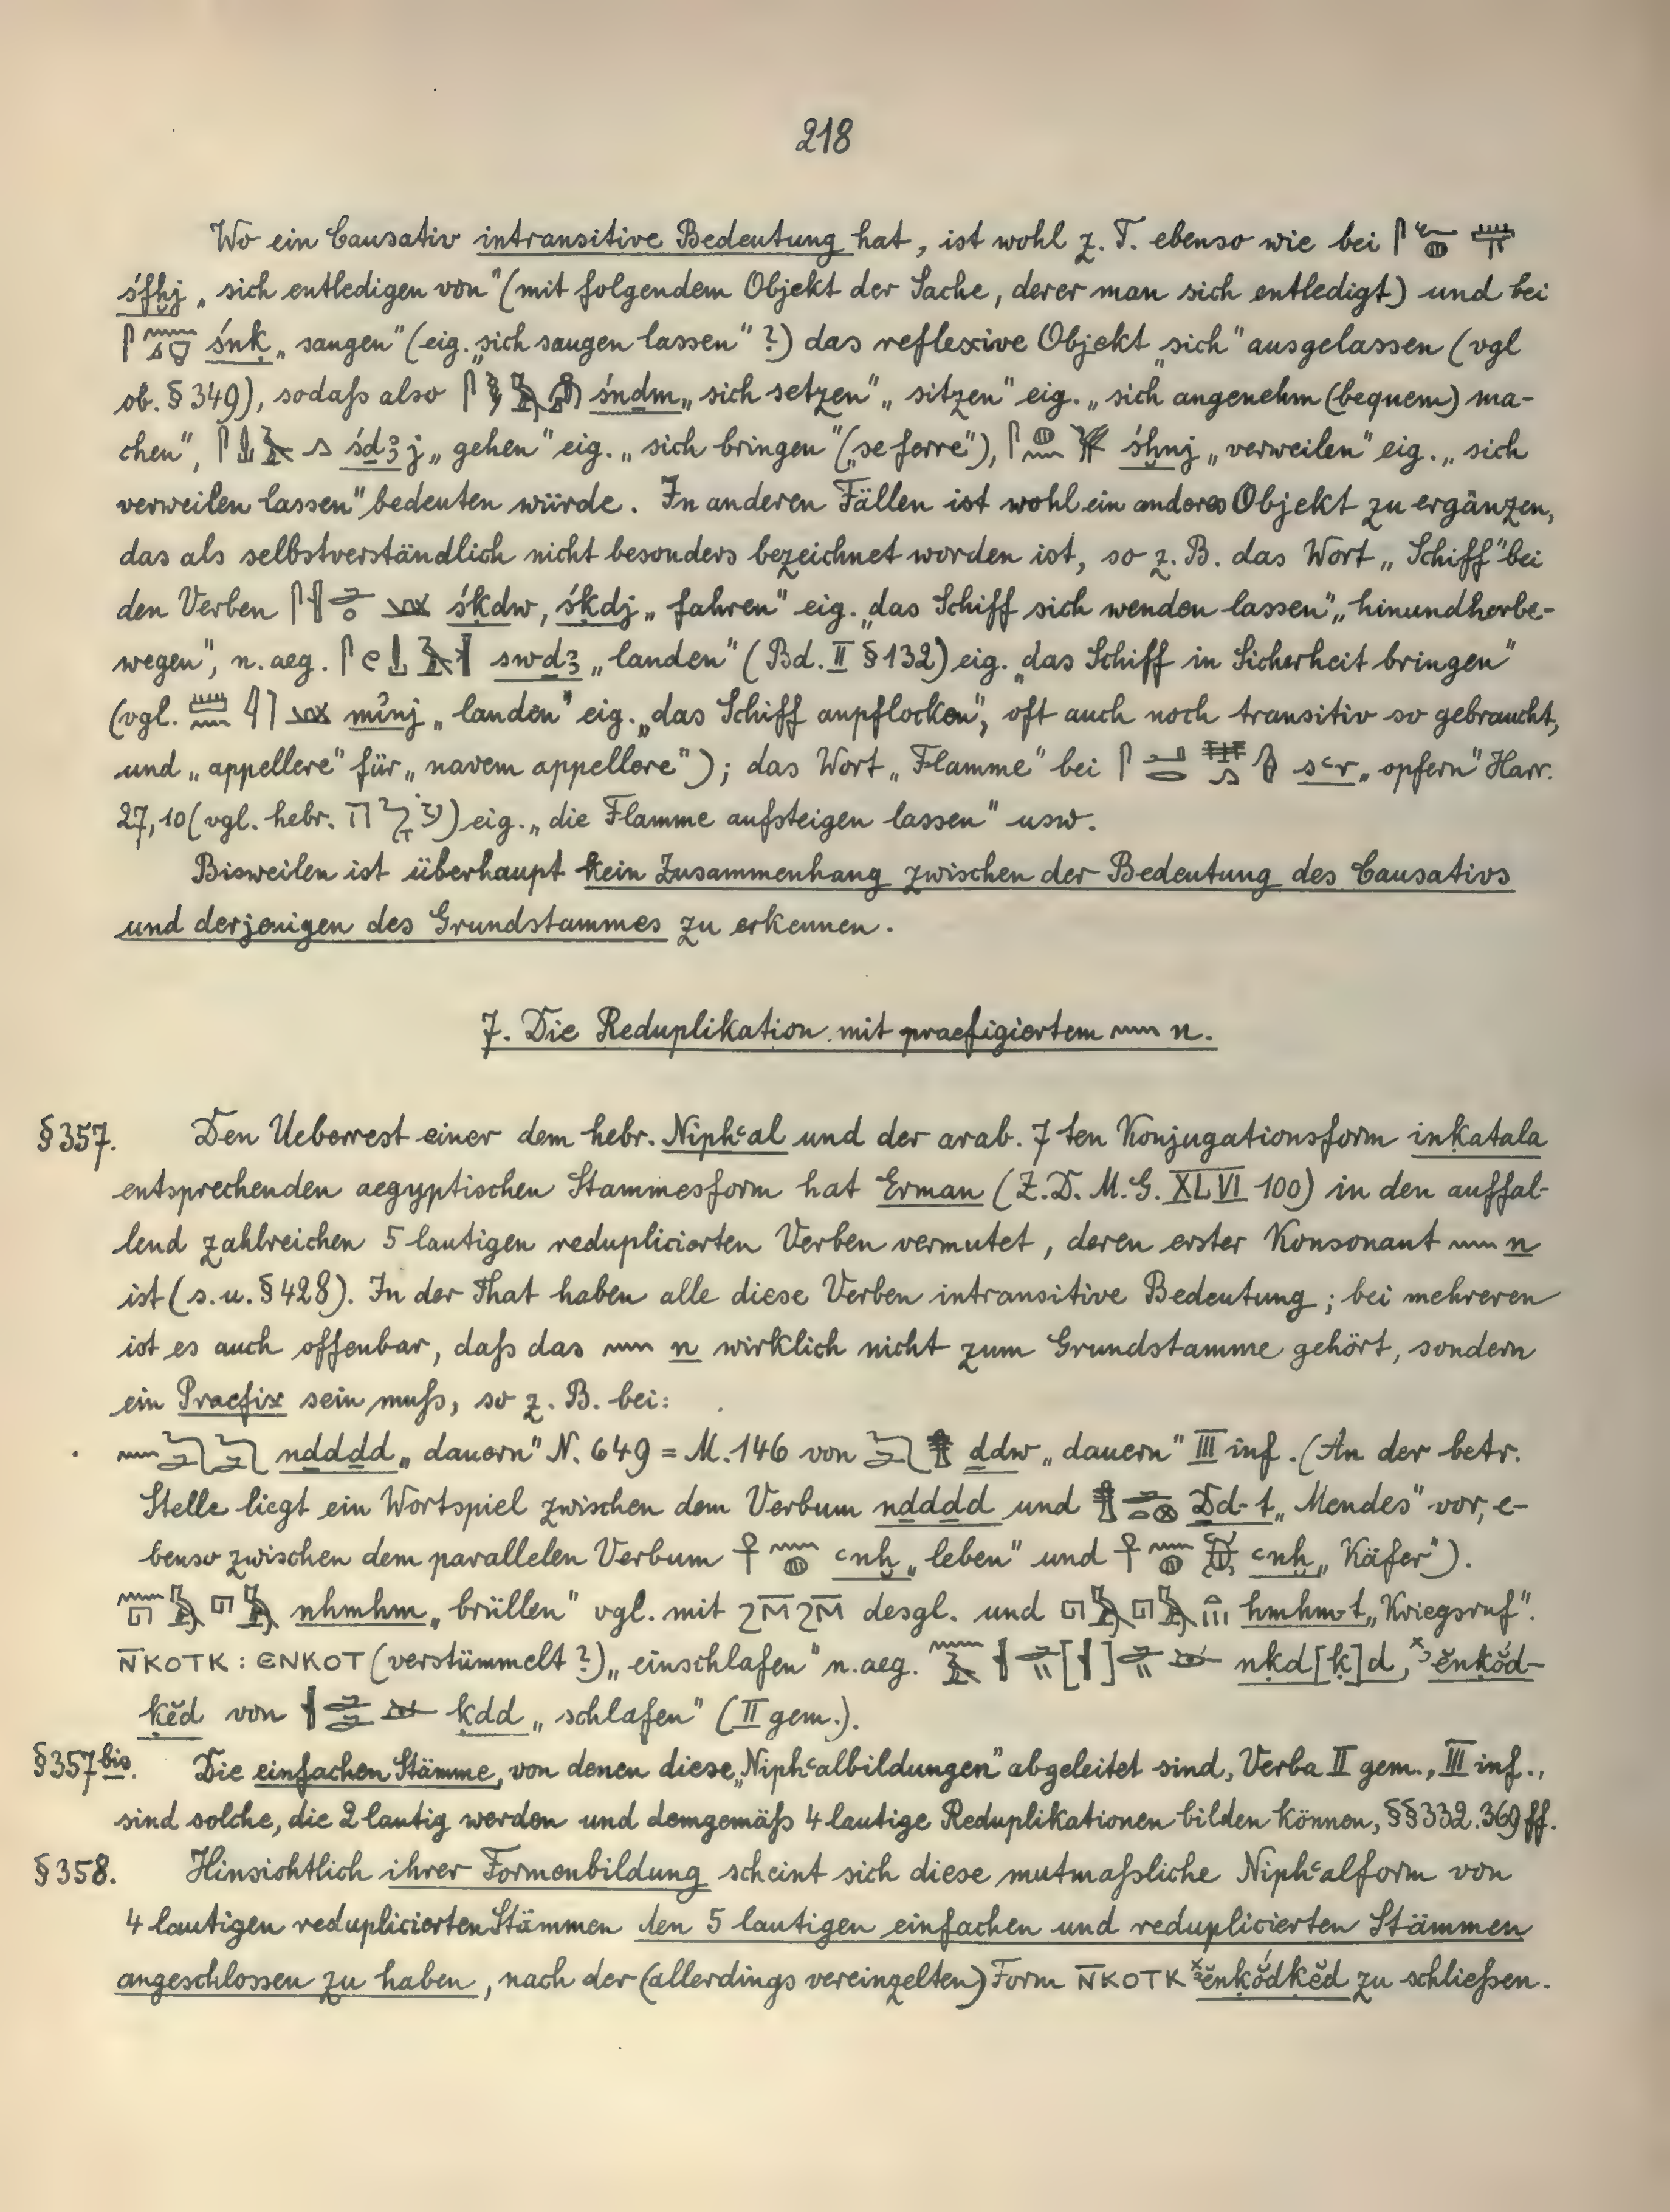 218
Wo ein Causativ intransitive Bedeutung hat, ist wohl z. T. ebenso wie bei
śfḫj „sich entledigen von“ (mit folgendem Objekt der Sache, derer man sich entledigt) und bei
śnḳ „saugen“ (eig. „sich saugen lassen“ ?) das reflexive Objekt „sich“ ausgelassen (vgl
ob. § 349), sodaß also śnḏm „sich setzen“ „sitzen“ eig. „sich angenehm (bequem) ma-
chen“, śḏꜣj „gehen“ eig. „sich bringen“ („se ferre“), śḫnj „verweilen“ eig. „sich
verweilen lassen“ bedeuten würde. In anderen Fällen ist wohl ein anderes Objekt zu ergänzen,
das als selbstverständlich nicht besonders bezeichnet worden ist, so z. B. das Wort „Schiff“ bei
den Verben śḳdw, śḳdj „fahren“ eig. „das Schiff sich wenden lassen“ „hinundherbe-
wegen“, n. aeg. swḏꜣ „landen“ (Bd. II § 132) eig. „das Schiff in Sicherheit bringen“
(vgl. mỉnj „landen“ eig. „das Schiff anpflocken“, oft auch noch transitiv so gebraucht,
und „appellere“ für „navem appellere“); das Wort „Flamme“ bei sꜥr „opfern“ Harr.
27,10 (vgl. hebr. ) eig. „die Flamme aufsteigen lassen“ usw.
Bisweilen ist überhaupt kein Zusammenhang zwischen der Bedeutung des Causativs
und derjenigen des Grundstammes zu erkennen.
7. Die Reduplikation mit praefigiertem 𓈖 n.
§ 357. Den Ueberrest einer dem hebr. Niphꜥal und der arab. 7 ten Konjugationsform inḳatala
entsprechenden aegyptischen Stammesform hat Erman (Z. D. M. G. XLVI 100) in den auffal-
lend zahlreichen 5 lautigen reduplicierten Verben vermutet, deren erster Konsonant 𓈖 n
ist (s. u. § 428). In der That haben alle diese Verben intransitive Bedeutung; bei mehreren
ist es auch offenbar, daß das 𓈖 n wirklich nicht zum Grundstamme gehört, sondern
ein Praefix sein muß, so z. B. bei:
𓈖𓆓𓂧𓆓𓂧 nḏdḏd „dauern“ N. 649 = M. 146 von 𓆓𓂧𓊽 ḏdw „dauern“ III inf. (An der betr.
Stelle liegt ein Wortspiel zwischen dem Verbum nḏdḏd und Ḏd-t „Mendes“ vor, e-
benso zwischen dem parallelen Verbum 𓋹𓈖𓐍 ꜥnḫ „leben“ und 𓋹𓈖𓐍𓆣 ꜥnḫ „Käfer“).
𓈖𓉔𓅓𓉔𓅓 nhmhm „brüllen“ vgl. mit ϩⲙ̅ϩⲙ̅ desgl. und 𓉔𓅓𓉔𓅓 hmhm-t „Kriegsruf“.
ⲛ̅ⲕⲟⲧⲕ : ⲉⲛⲕⲟⲧ (verstümmelt ?) „einschlafen“ n. aeg. nḳd[ḳ]d, ˣꜣĕnḳŏ́d-
ḳĕd von ḳdd „schlafen“ (II gem.).
§ 357 bis. Die einfachen Stämme, von denen diese „Niphꜥalbildungen“ abgeleitet sind, Verba II gem., III inf.,
sind solche, die 2 lautig werden und demgemäß 4 lautige Reduplikationen bilden können, §§ 332. 369 ff.
§ 358. Hinsichtlich ihrer Formenbildung scheint sich diese mutmaßliche Niphꜥalform von
4 lautigen reduplicierten Stämmen den 5 lautigen einfachen und reduplicierten Stämmen
angeschlossen zu haben, nach der (allerdings vereinzelten) Form ⲛ̅ⲕⲟⲧⲕ ˣꜣĕnḳŏ́dḳĕd zu schließen.